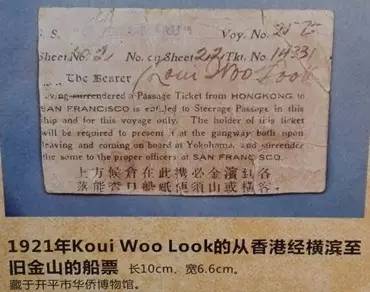 S. S.
Voy. No. 25
Sheet No. 2 No. on Sheet 22 Tkt. No. 14331
The Bearer Koui Woo Look
having surrendered a Passage Ticket from HONGKONG to
SAN FRANCISCO is entitled to Steerage Passage in this
ship and for this voyage only. The holder of this ticket
will be required to present it at the gangway both upon
leaving and coming on board at Yokohama, and surrender
the some to the proper officers at SAN FRANCISCO.
各客
到橫
濱或
金山
必須
攜
此紙
在船
倉口
候查
方能
上落
1921年Koui Woo Look的从香港经横滨至
旧金山的船票 长10cm，宽6.6cm。
藏于开平市华侨博物馆。